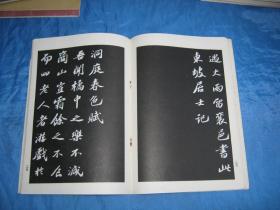 遊大雨留襄邑書此
東坡居士記
洞庭春色賦
吾聞橘中之樂不減
商山豈霜餘之不食
而四老人者遊戲於